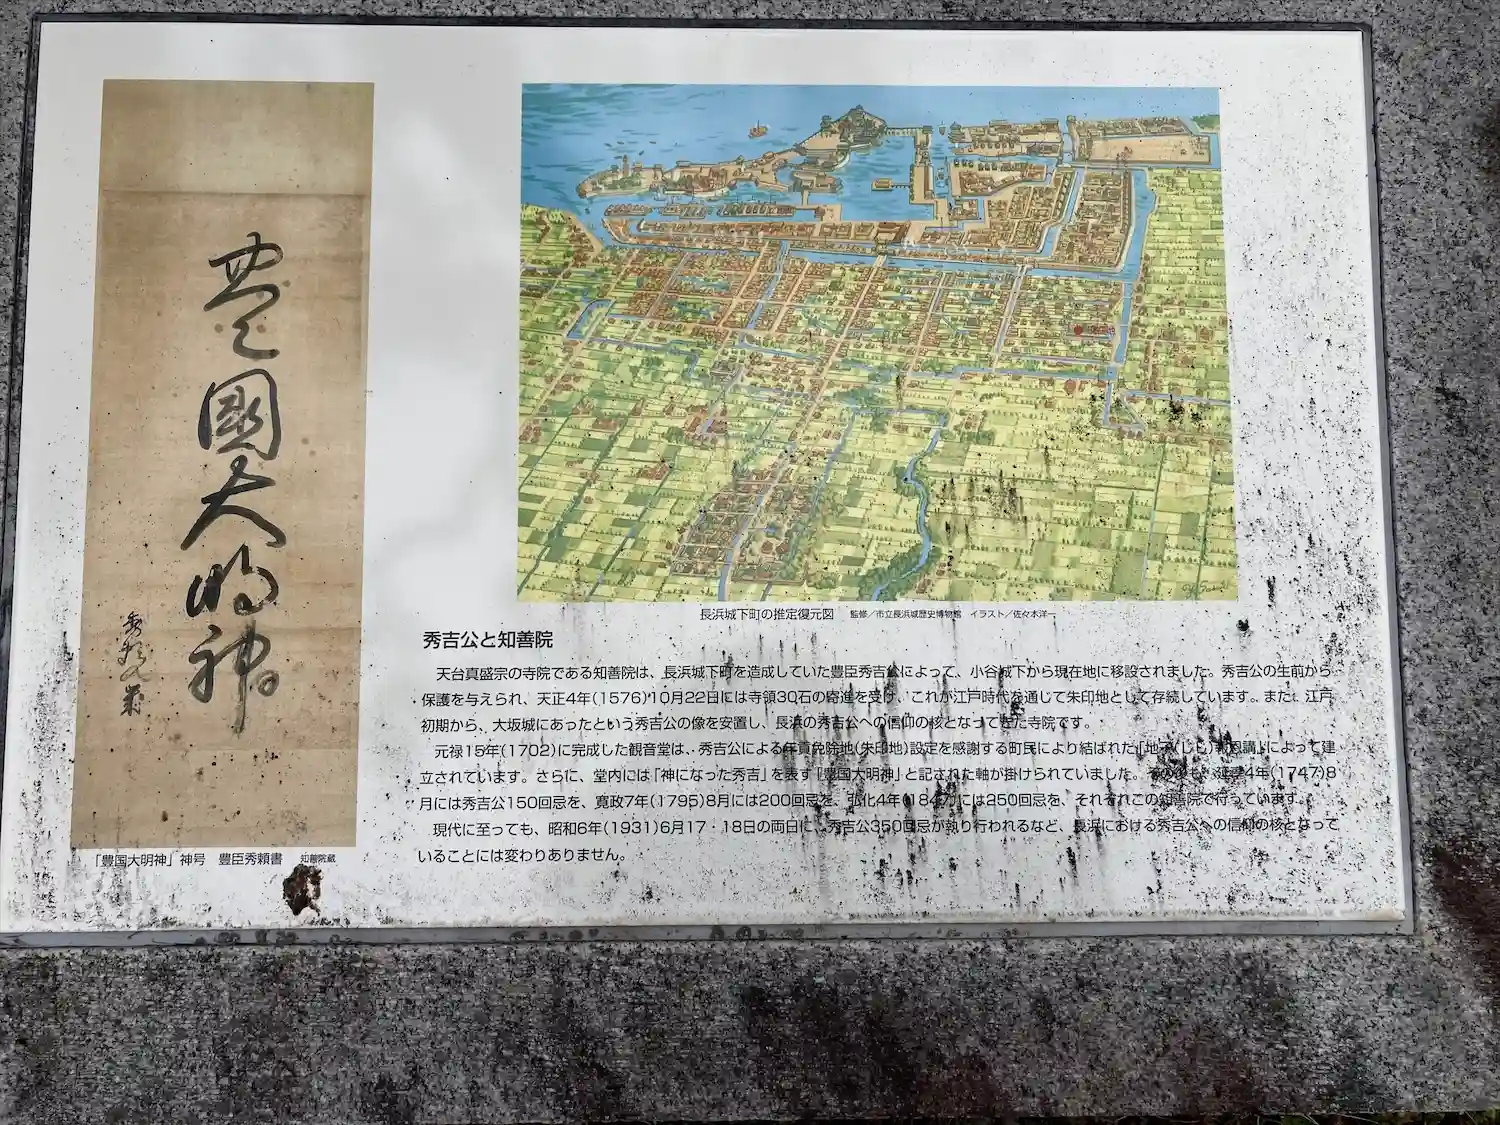 豊国大明神
長浜城下町の推定復元図 監修／市立長浜城歴史博物館 イラスト／佐々木洋一
秀吉公と知善院
天台真盛宗の寺院である知善院は、長浜城下町を造成していた豊臣秀吉公によって、小谷城下から現在地に移設されました。秀吉公の生前から
保護を与えられ、天正4年(1576)10月22日には寺領30石の寄進を受け、これが江戸時代を通じて朱印地として存続しています。また、江戸
初期から、大坂城にあったという秀吉公の像を安置し、長浜の秀吉公への信仰の核となってきた寺院です。
元禄15年(1702)に完成した観音堂は、秀吉公による年貢免除地(朱印地)設定を感謝する町民により結ばれた「地子(じし)報恩講」によって建
立されています。さらに、堂内には「神になった秀吉」を表す「豊国大明神」と記された軸が掛けられていました。その後も、延享4年(1747)8
月には秀吉公150回忌を、寛政7年(1795)8月には200回忌を、弘化4年(1847)には250回忌を、それぞれこの知善院で行っています。
現代に至っても、昭和6年(1931)6月17・18日の両日に、秀吉公350回忌が執り行われるなど、長浜における秀吉公への信仰の核となって
いることには変わりありません。
「豊国大明神」神号 豊臣秀頼書 知善院蔵